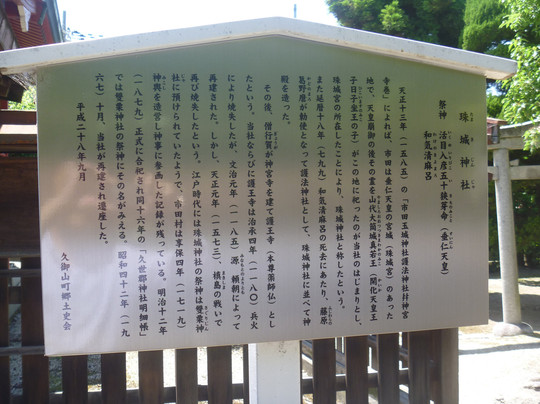 珠城神社
祭神 活目入彦五十狭茅命(垂仁天皇)
和気清麻呂
天正十三年(一五八五)の「市田玉城神社護法神社幷神宮
寺巻」によれば、市田は垂仁天皇の宮城(珠城宮)のあった
地で、天皇崩御の後その霊を山代大筒城真若王(開化天皇王
子日子坐王の子)がこの地に祀ったのが当社のはじまりとし、
珠城宮の所在したことにより、珠城神社と称したという。
また延暦十八年(七九九)和気清麻呂の死去にあたり、藤原
葛野麿が勅使となって護法神社として、珠城神社に並べて神
殿を造った。
その後、僧行賀が神宮寺を建て護王寺(本尊薬師仏)とし
たという。当社ならびに護王寺は治承四年(一一八〇)兵火
により焼失したが、文治元年(一一八五)源 頼朝によって
再建された。しかし、天正元年(一五七三)槙島の戦いで
再び焼失したという。江戸時代には珠城神社の祭神は雙栗神
社に預けられていたようで、市田村は享保四年(一七一九)
神輿を造営し神事に参画した記録が残っている。明治十二年
(一八七九)正式に合祀され同十六年の「久世郡神社明細帳」
では雙栗神社の祭神にその名がみえる。昭和四十二年(一九
六七)十月、当社が再建され遷座した。
平成二十八年九月
久御山町郷土史会